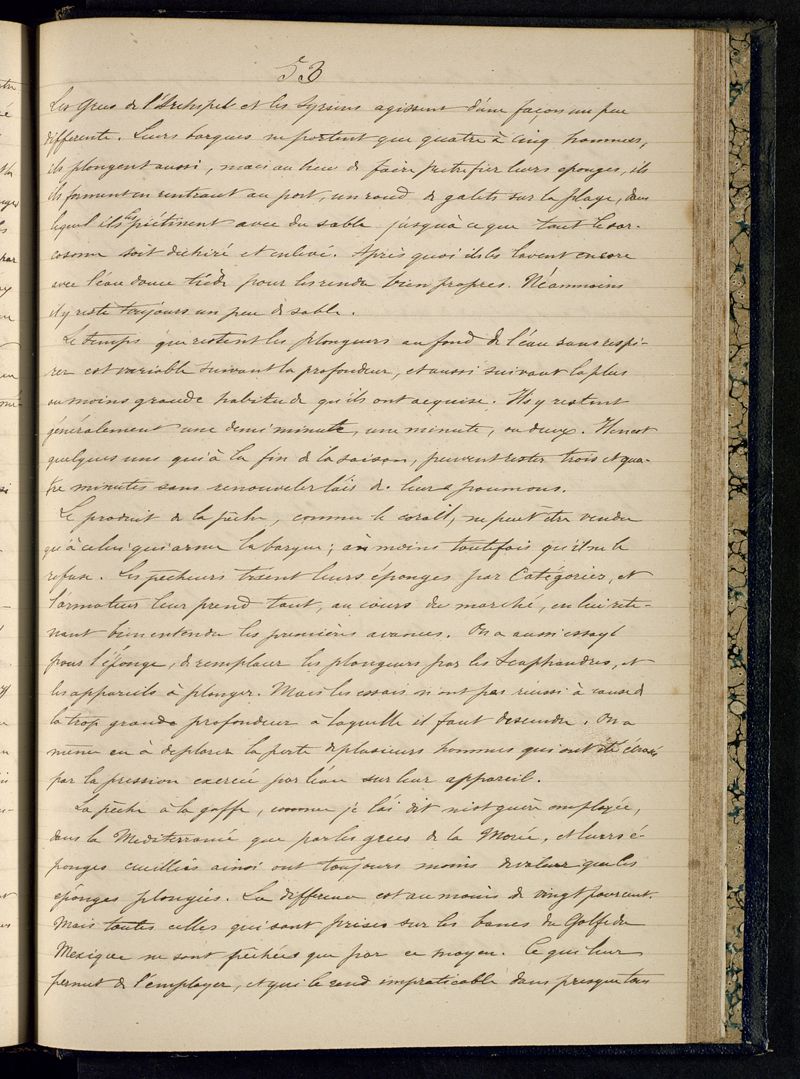 53
Les Grecs de l'Archipel et les Syriens agissent d'une façon un peu
différente. Leurs barques ne portent que quatre à cinq hommes,
ils plongent aussi, mais au lieu de faire putrefier leurs eponges, ils
ils forment en rentrant au port, un rond de galets sur la plage, dans
lequel ils les piétinent avec du sable jusqu'à ce que tout le sar-
cosome soit déchiré et enlevé. Après quoi ils les lavent encore
avec l'eau douce tiède pour les rendre bien propres. Néanmoins
il y reste toujours un peu de sable.
Le temps que restent les plongeurs au fond de l'eau sans respi-
rer est variable suivant la profondeur, et aussi suivant la plus
ou moins grande habitude qu'ils ont acquise. Ils y restent
généralement une demi minute, une minute, ou deux. Il en est
quelques uns qui à la fin de la saison, peuvent rester trois et qua-
tre minutes sans renouveler l'air de leurs poumons.
Le produit de la pêche, comme le corail, ne peut être vendu
qu'à celui qui arme la barque; à moins toutefois qu'il ne le
refuse. Les pêcheurs trient leurs éponges par Catégories, et
l'armateur leur prend tout, au cours du marché, en lui rete-
nant bien entendu les premières avances. On a aussi essayé
pour l'éponge, de remplacer les plongeurs par les Scaphandres, et
les appareils à plonger. Mais les essais n'ont pas réussi à cause de
la trop grande profondeur à laquelle il faut descendre. On a
même eu à deplorer la perte de plusieurs hommes qui ont été écrasés
par la pression exercée par l'eau sur leur appareil.
La pêche à la gaffe, comme je l'ai dit n'est guère employée,
dans la Mediterranée que par les grecs de la Morée, et leurs é-
ponges cueillies ainsi ont toujours moins de valeur que les
éponges plongées. La différence est au moins de vingt pour cent.
Mais toutes celles qui sont prises sur les bancs du Golfe du
Mexique ne sont pêchées que par ce moyen. Ce qui leur
permet de l'employer, et qui le rend impraticable dans presque tous